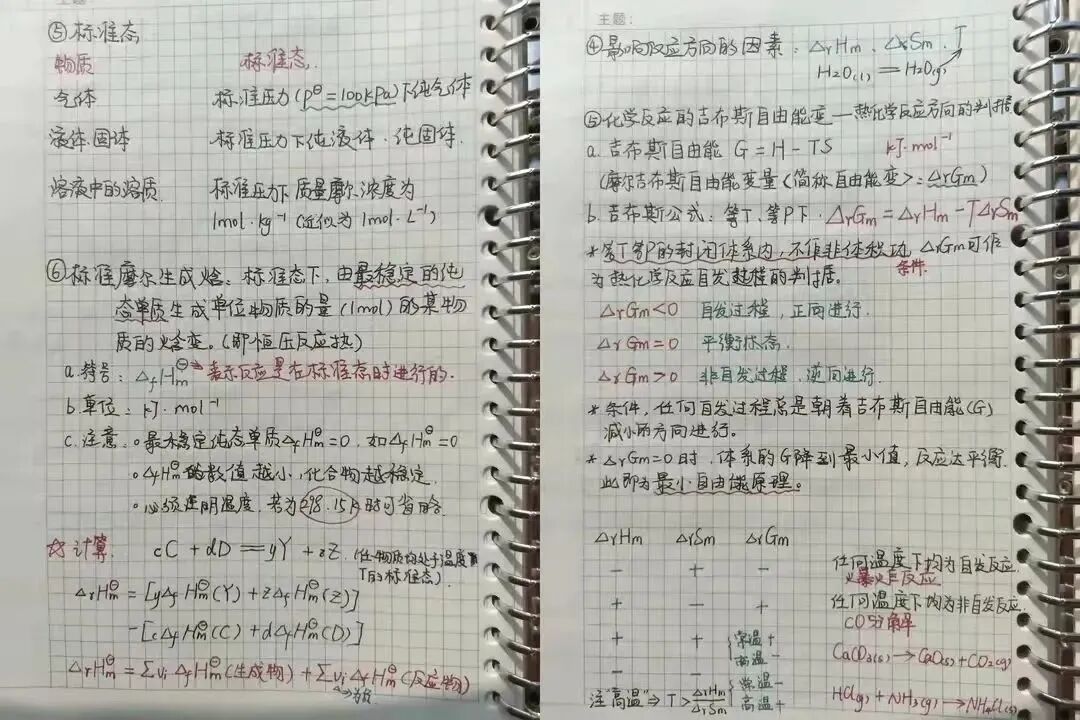 ⑤标准态
物质 标准态.
气体 标准压力(p⊖=100kPa)下纯气体
液体.固体 标准压力下纯液体.纯固体.
溶液中的溶质. 标准压力下质量摩尔浓度为
1mol·kg⁻¹(近似为1mol·L⁻¹)
⑥标准摩尔生成焓:标准态下,由最稳定的纯
态单质生成单位物质的量(1mol)的某物
质的焓变。(即恒压反应热)
a.符号:ΔfHm⊖→表示反应是在标准态时进行的.
b.单位:kJ·mol⁻¹
c.注意:。最稳定纯态单质ΔfHm⊖=0,如ΔfHm⊖=0
。ΔfHm⊖的数值越小,化合物越稳定.
。必须注明温度,若为298.15K时可省略.
☆计算. cC+dD═yY+zZ.(任一物质均处于温度
T的标准态)
ΔrHm⊖=[yΔfHm⊖(Y)+zΔfHm⊖(Z)]
-[cΔfHm⊖(C)+dΔfHm⊖(D)]
ΔrHm⊖=Σνi ΔfHm⊖(生成物)+Σνi ΔfHm⊖(反应物)
→为负
主题:
④影响反应方向的因素:ΔrHm、ΔrSm、T
H2O(l)═H2O(g)
⑤化学反应的吉布斯自由能变—热化学反应方向的判据
a.吉布斯自由能 G=H-TS kJ·mol⁻¹
(摩尔吉布斯自由能变量<简称自由能变>:ΔrGm)
b.吉布斯公式:等T、等P下.ΔrGm=ΔrHm-TΔrSm
*等T等P的封闭体系内,不作非体积功,ΔrGm可作
条件.
为热化学反应自发过程的判据。
ΔrGm<0 自发过程,正向进行.
ΔrGm=0 平衡状态.
ΔrGm>0 非自发过程.逆向进行.
*条件,任何自发过程总是朝着吉布斯自由能(G)
减小的方向进行。
*ΔrGm=0时.体系的G降到最小值,反应达平衡.
此即为最小自由能原理。
ΔrHm ΔrSm ΔrGm
- + - 任何温度下均为自发反应.
火暴火乍反应
+ - + 任何温度下均为非自发反应.
CO分解
+ + {常温+
高温- CaCO3(s)→CaO(s)+CO2(g)
- - {常温-
高温+ HCl(g)+NH3(g)→NH4Cl(s)
注"高温"⇒T>ΔrHm/ΔrSm